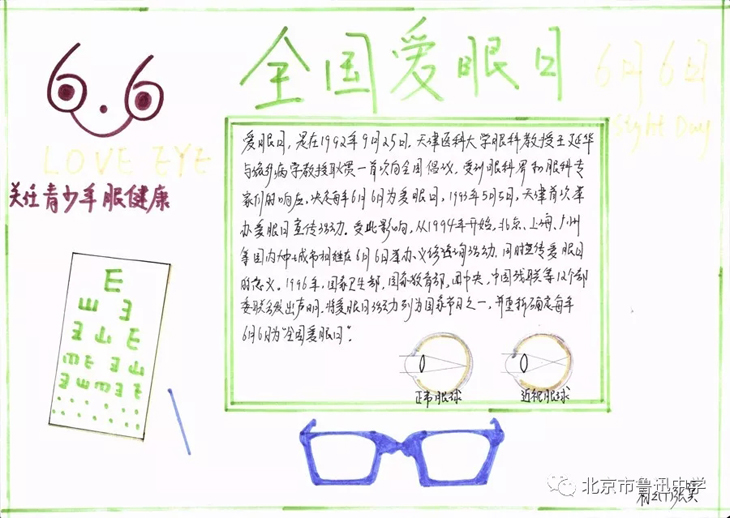 全国爱眼日
6.6
6月6日
Sight Day
LOVE EYE
关注青少年眼健康
爱眼日，是在1992年9月25日，天津医科大学眼科教授王延华
与流行病学教授耿贯一首次向全国倡议，受到眼科界和眼科专
家们的响应，决定每年6月6日为爱眼日，1993年5月5日，天津首次举
办爱眼日宣传活动。受此影响，从1994年开始，北京、上海、广州
等国内大中城市相继在6月6日举办义诊咨询活动，同时宣传爱眼日
的意义。1996年，国家卫生部，国家教育部，团中央，中国残联等12个部
委联合发出声明，将爱眼日活动列为国家节日之一，并重新确定每年
6月6日为"全国爱眼日"。
E
正常眼球
近视眼球
北京市鲁迅中学